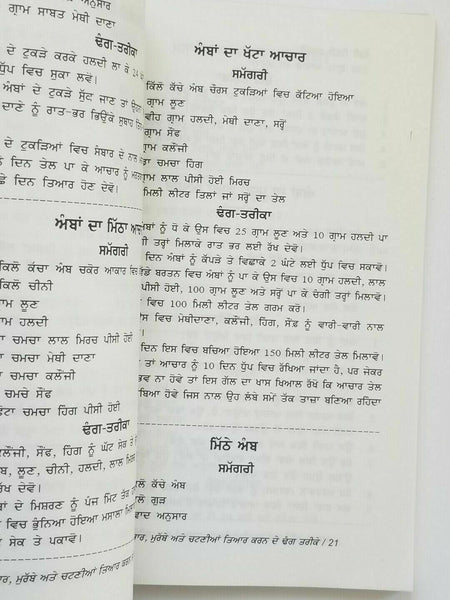 ਅਨੁਸਾਰ
ਗ੍ਰਾਮ ਸਾਬਤ ਮੇਥੀ ਦਾਣਾ
ਢੰਗ-ਤਰੀਕਾ
ਦੇ ਟੁਕੜੇ ਕਰਕੇ ਹਲਦੀ ਲਾ ਕੇ 24
ਧੁੱਪ ਵਿਚ ਸੁਕਾ ਲਵੋ।
ਅੰਬਾਂ ਦੇ ਟੁਕੜੇ ਸੁੱਟ ਜਾਣ ਤਾਂ
ਦਾਣੇ ਨੂੰ ਰਾਤ-ਭਰ ਭਿਉਂਕੇ ਸੁਬਾਹ
ਦੇ ਟੁਕੜਿਆਂ ਵਿਚ ਸੇਬਾਰ ਦੇ ਨਾਲ
ਦਿਨ ਤੇਲ ਪਾ ਕੇ ਆਚਾਰ ਨੂੰ
ਦਿਨ ਤਿਆਰ ਹੋਣ ਦੇਵੋ।
ਅੰਬਾਂ ਦਾ ਮਿੱਠਾ
ਸਮੱਗਰੀ
ਕਿਲੋ ਕੱਚਾ ਅੰਬ ਚਕੋਰ ਆਕਾਰ
ਕਿਲੋ ਚੀਨੀ
ਲੂਣ
ਹਲਦੀ
ਚਮਚਾ ਲਾਲ ਮਿਰਚ ਪੀਸੀ ਹੋਈ
ਚਮਚਾ ਮੇਥੀ ਦਾਣਾ
ਚਮਚਾ ਕਲੌਂਜੀ
ਚਮਚਾ ਸੌਂਫ
ਚਮਚਾ ਹਿੰਗ ਪੀਸੀ ਹੋਈ
ਢੰਗ-ਤਰੀਕਾ
ਸੌਂਫ, ਹਿੰਗ ਨੂੰ ਘੱਟ ਸੇਕ
ਲੂਣ, ਚੀਨੀ, ਹਲਦੀ, ਲਾਲ
ਦੇਵੋ।
ਦੇ ਮਿਸ਼ਰਣ ਨੂੰ ਪੰਜ ਮਿੰਟ ਤੱਕ
ਵਿਚ ਭੁੰਨਿਆ ਹੋਇਆ ਮਸਾਲਾ
ਸੇਕ ਤੇ ਪਕਾਵੋ।
ਮੁਰੱਬੇ ਅਤੇ ਚਟਣੀਆਂ ਤਿਆਰ ਕਰਨ
ਅੰਬਾਂ ਦਾ ਖੱਟਾ ਆਚਾਰ
ਸਮੱਗਰੀ
ਕਿਲੋ ਕੱਚੇ ਅੰਬ ਚੌਰਸ ਟੁਕੜਿਆਂ ਵਿਚ ਕੱਟਿਆ ਹੋਇਆ
ਗ੍ਰਾਮ ਲੂਣ
ਵੀਹ ਗ੍ਰਾਮ ਹਲਦੀ, ਮੇਥੀ ਦਾਣਾ, ਸਰ੍ਹੋਂ
ਗ੍ਰਾਮ ਸੌਂਫ
ਗ੍ਰਾਮ ਕਲੌਂਜੀ
ਚਮਚਾ ਹਿੰਗ
ਗ੍ਰਾਮ ਲਾਲ ਪੀਸੀ ਹੋਈ ਮਿਰਚ
ਮਿਲੀ ਲੀਟਰ ਤਿਲਾਂ ਜਾਂ ਸਰ੍ਹੋਂ ਦਾ ਤੇਲ
ਢੰਗ-ਤਰੀਕਾ
ਅੰਬਾਂ ਨੂੰ ਧੋ ਕੇ ਉਸ ਵਿਚ 25 ਗ੍ਰਾਮ ਲੂਣ ਅਤੇ 10 ਗ੍ਰਾਮ ਹਲਦੀ ਪਾ
ਤਰ੍ਹਾਂ ਮਿਲਾਕੇ ਰਾਤ ਭਰ ਲਈ ਰੱਖ ਦੇਵੋ।
ਦਿਨ ਅੰਬਾਂ ਨੂੰ ਕੱਪੜੇ ਤੇ ਵਿਛਾਕੇ 2 ਘੰਟੇ ਲਈ ਧੁੱਪ ਵਿਚ ਸਕਾਵੋਂ।
ਬਰਤਨ ਵਿਚ ਅੰਬਾਂ ਨੂੰ ਪਾ ਕੇ ਉਸ ਵਿਚ 10 ਗ੍ਰਾਮ ਹਲਦੀ, ਲਾਲ
ਪੀਸੀ ਹੋਈ, 100 ਗ੍ਰਾਮ ਲੂਣ ਅਤੇ ਸਰ੍ਹੋਂ ਪਾ ਕੇ ਚੰਗੀ ਤਰ੍ਹਾਂ ਮਿਲਾਵੋ।
ਵਿਚ 100 ਮਿਲੀ ਲੀਟਰ ਤੇਲ ਗਰਮ ਕਰੋ।
ਵਿਚ ਮੇਥੀਦਾਣਾ, ਕਲੌਂਜੀ, ਹਿੰਗ, ਸੌਂਫ ਨੂੰ ਵਾਰੀ-ਵਾਰੀ ਨਾਲ
ਦਿਨ ਇਸ ਵਿਚ ਬਚਿਆ ਹੋਇਆ 150 ਮਿਲੀ ਲੀਟਰ ਤੇਲ ਮਿਲਾਵੋ।
ਤਾਂ ਆਚਾਰ ਨੂੰ 10 ਦਿਨ ਧੁੱਪ ਵਿਚ ਰੱਖਿਆ ਜਾਂਦਾ ਹੈ, ਪਰ ਜੇਕਰ
ਨਾ ਹੋਵੇ ਤਾਂ ਇਸ ਗੱਲ ਦਾ ਖਾਸ ਖਿਆਲ ਰੱਖੋ ਕਿ ਆਚਾਰ ਤੇਲ
ਹੋਵੇ ਜਿਸ ਨਾਲ ਉਹ ਲੰਬੇ ਸਮੇਂ ਤੱਕ ਤਾਜ਼ਾ ਬਣਿਆ ਰਹਿਦਾ
ਮਿੱਠੇ ਅੰਬ
ਸਮੱਗਰੀ
ਕੱਚੇ ਅੰਬ
ਗੁੜ
ਅਨੁਸਾਰ
ਮੁਰੱਬੇ ਅਤੇ ਚਟਣੀਆਂ ਤਿਆਰ ਕਰਨ ਦੇ ਢੰਗ ਤਰੀਕੇ / 21